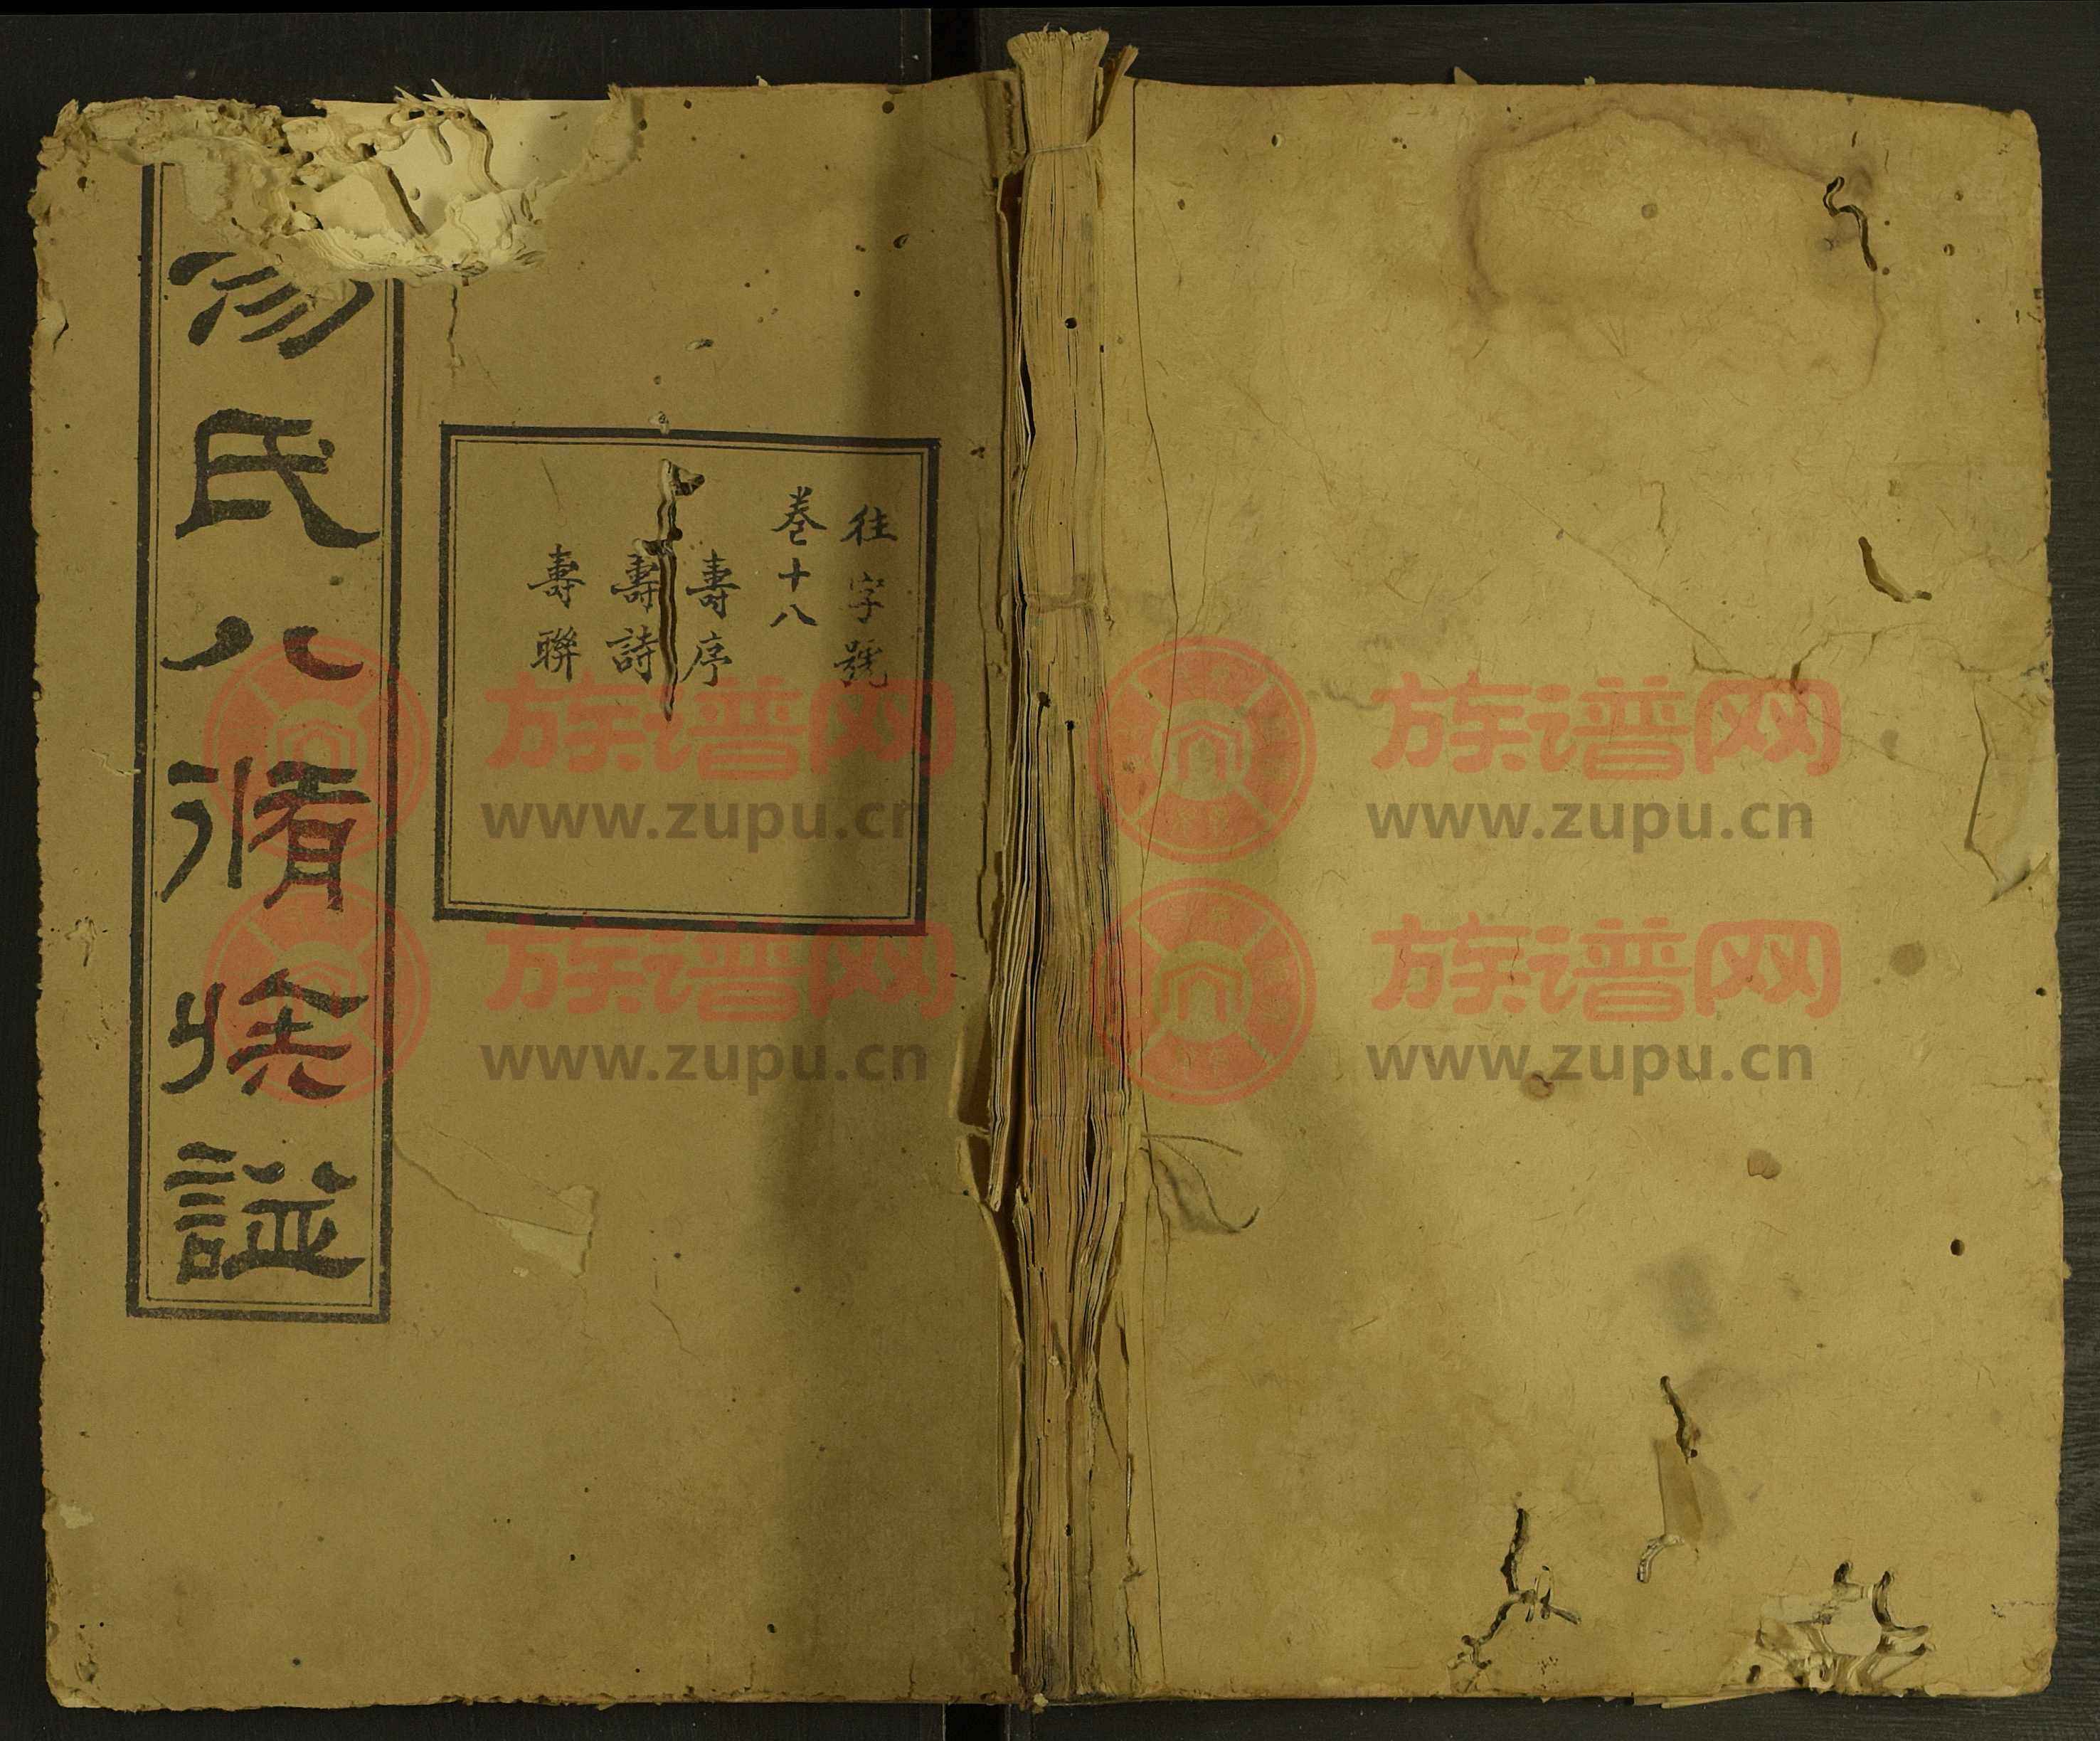 往字號
卷十八
壽序
壽詩
壽聯
氏八脩族譜
族谱网
www.zupu.cn
族谱网
www.zupu.cn
族谱网
www.zupu.cn
族谱网
www.zupu.cn